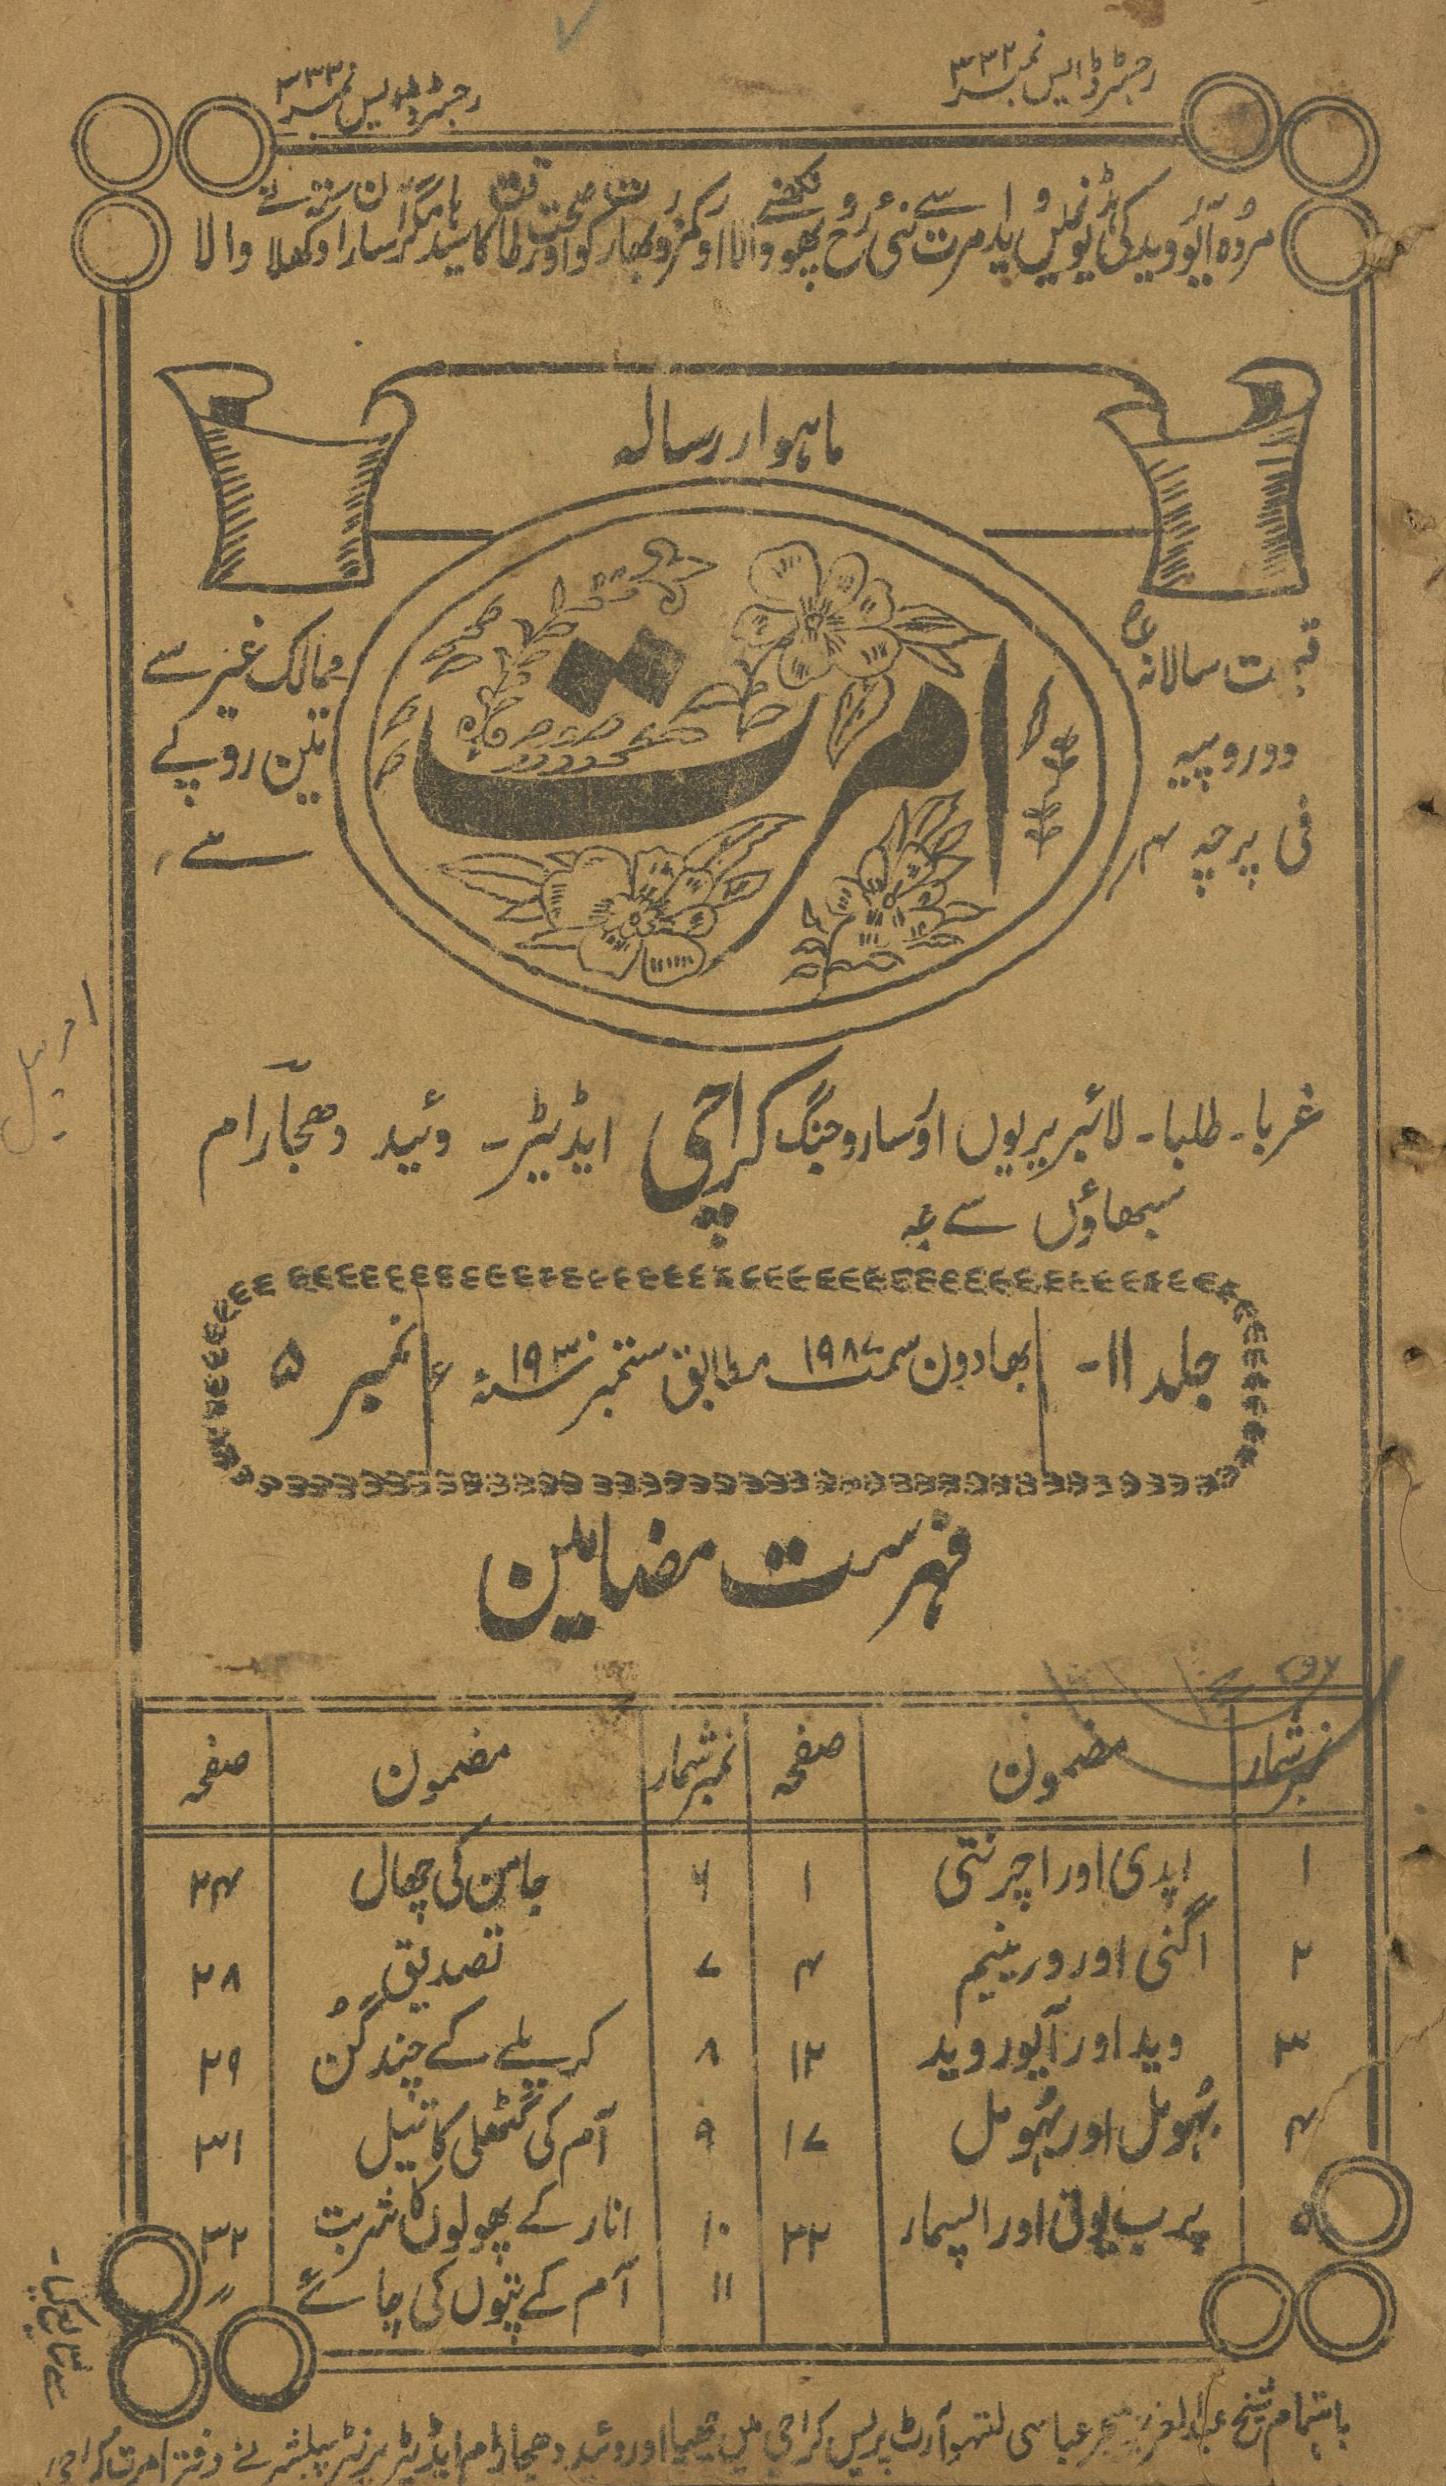 رجسٹرڈ ایس نمبر ۳۳۲
رجسٹرڈ ایس نمبر ۳۳۲
مردہ آیوروید کی ہڈیوں میں امرت سے نئی رُوح پھونکنے والا اور کمزور و بیمار کو صحت اور طاقت کا سیدھا مگر آسان راستہ دکھلانے والا
ماہوار رسالہ
امرت
قیمت سالانہ
دو روپیہ
فی پرچہ ۴ر
ممالک غیر سے
تین روپے
غربا۔ طلبا۔ لائبریریوں اور ساروجنک
سبھاؤں سے
کراچی
ایڈیٹر۔ وئید دھجآرام
جلد ۱۱۔
بھادون سمت ۱۹۸۷ مطابق ستمبر سنہ ۱۹۳۰ء
نمبر ۵
فہرست مضامین
نمبر شمار مضمون صفحہ نمبر شمار مضمون صفحہ
۱ اپدی اور اچرنتی ۱ ۶ جامن کی چھال ۲۴
۲ اگنی اور ورینیم ۴ ۷ تصدیق ۲۸
۳ وید اور آیوروید ۱۲ ۸ کریلے کے چند گُن ۲۹
۴ بہُومل اور بہُومل ۱۷ ۹ آم کی گٹھلی کا تیل ۳۱
۵ پرب یوتی اور اپسمار ۲۲ ۱۰ انار کے پھولوں کا شربت ۳۲
۱۱ آم کے پتوں کی چائے ״
باہتمام شیخ عبدالعزیز منیجر عباسی لیتھو آرٹ پریس کراچی میں چھپا اور وئید دھجارام ایڈیٹر پرنٹر پبلشر نے دفتر امرت کراچی